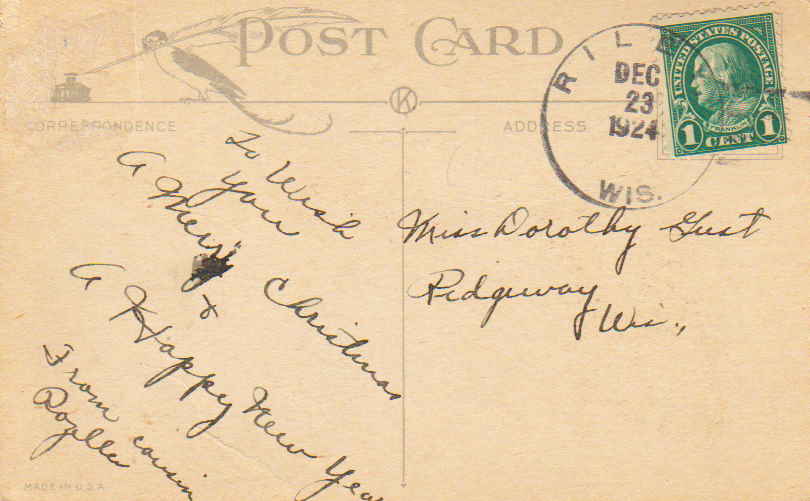 POST CARD
RILE
DEC
23
1924
WIS.
UNITED STATES POSTAGE
FRANKLIN
1 CENT 1
K
CORRESPONDENCE
ADDRESS
To Wish
You
A Merry Christmas
+
A Happy New Year
From cousin
Miss Dorothy Gust
Ridgeway
Wis.,
MADE IN U.S.A